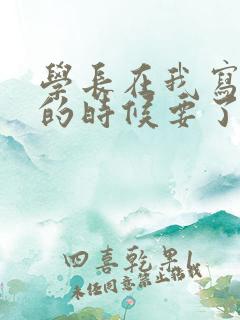 學長在我寫
的時候要了
四喜乾果1
未经同意禁止转载